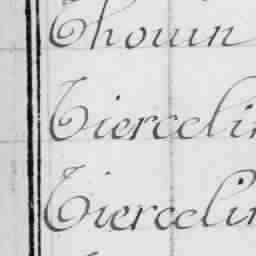 Thouin
Tiercelin
Tiercelin